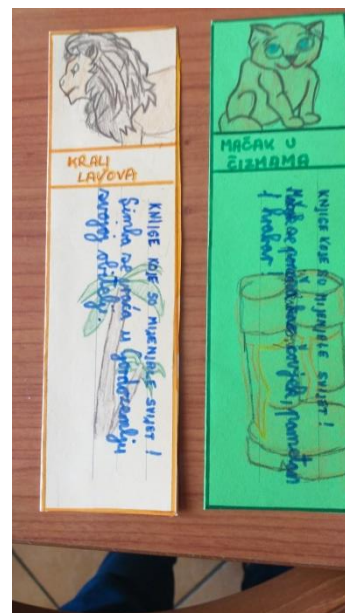 KRALJ
LAVOVA
KNJIGE KOJE SU MIJENJALE SVIJET !
Simba se u
svojoj obitelji.
MAČAK U
ČIZMAMA
KNJIGE KOJE SU MIJENJALE SVIJET !
Mačak se ponaša kao čovjek, pametan
i hrabar !